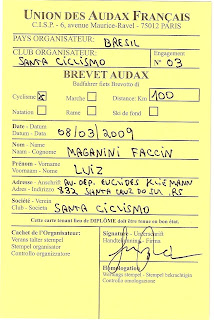 UNION DES AUDAX FRANÇAIS
C.I.S.P. - 6, avenue Maurice-Ravel - 75012 PARIS
PAYS ORGANISATEUR: BRESIL
CLUB ORGANISATEUR: Engagement
SANTA CICLISMO N° 03
BREVET AUDAX
Cyclisme X Marche Distance: Km 100
Natation Rame Ski de fond
Date - Datum
Datum - Data 08/03/2009
Nom - Name
Naam - Cognome MAGANINI FACCIN
Prénom - Vorname
Voornaam - Nome LUIZ
Adresse - Anschrift AV. DEP. EUCLIDES KLIEMANN
Adres - Indirizzo 332 SANTA CRUZ DO SUL . RS
Société - Verein
Club - Societa SANTA CICLISMO
Cette carte tenant lieu de DIPLÔME doit être tenue en bon état.
Cachet de l'Organisateur: Signature - Unterschrift
Verans talter stempel Handtekening - Firma
Stempel organisator
Controllo organizzatore Homologation
Controllo omologazione